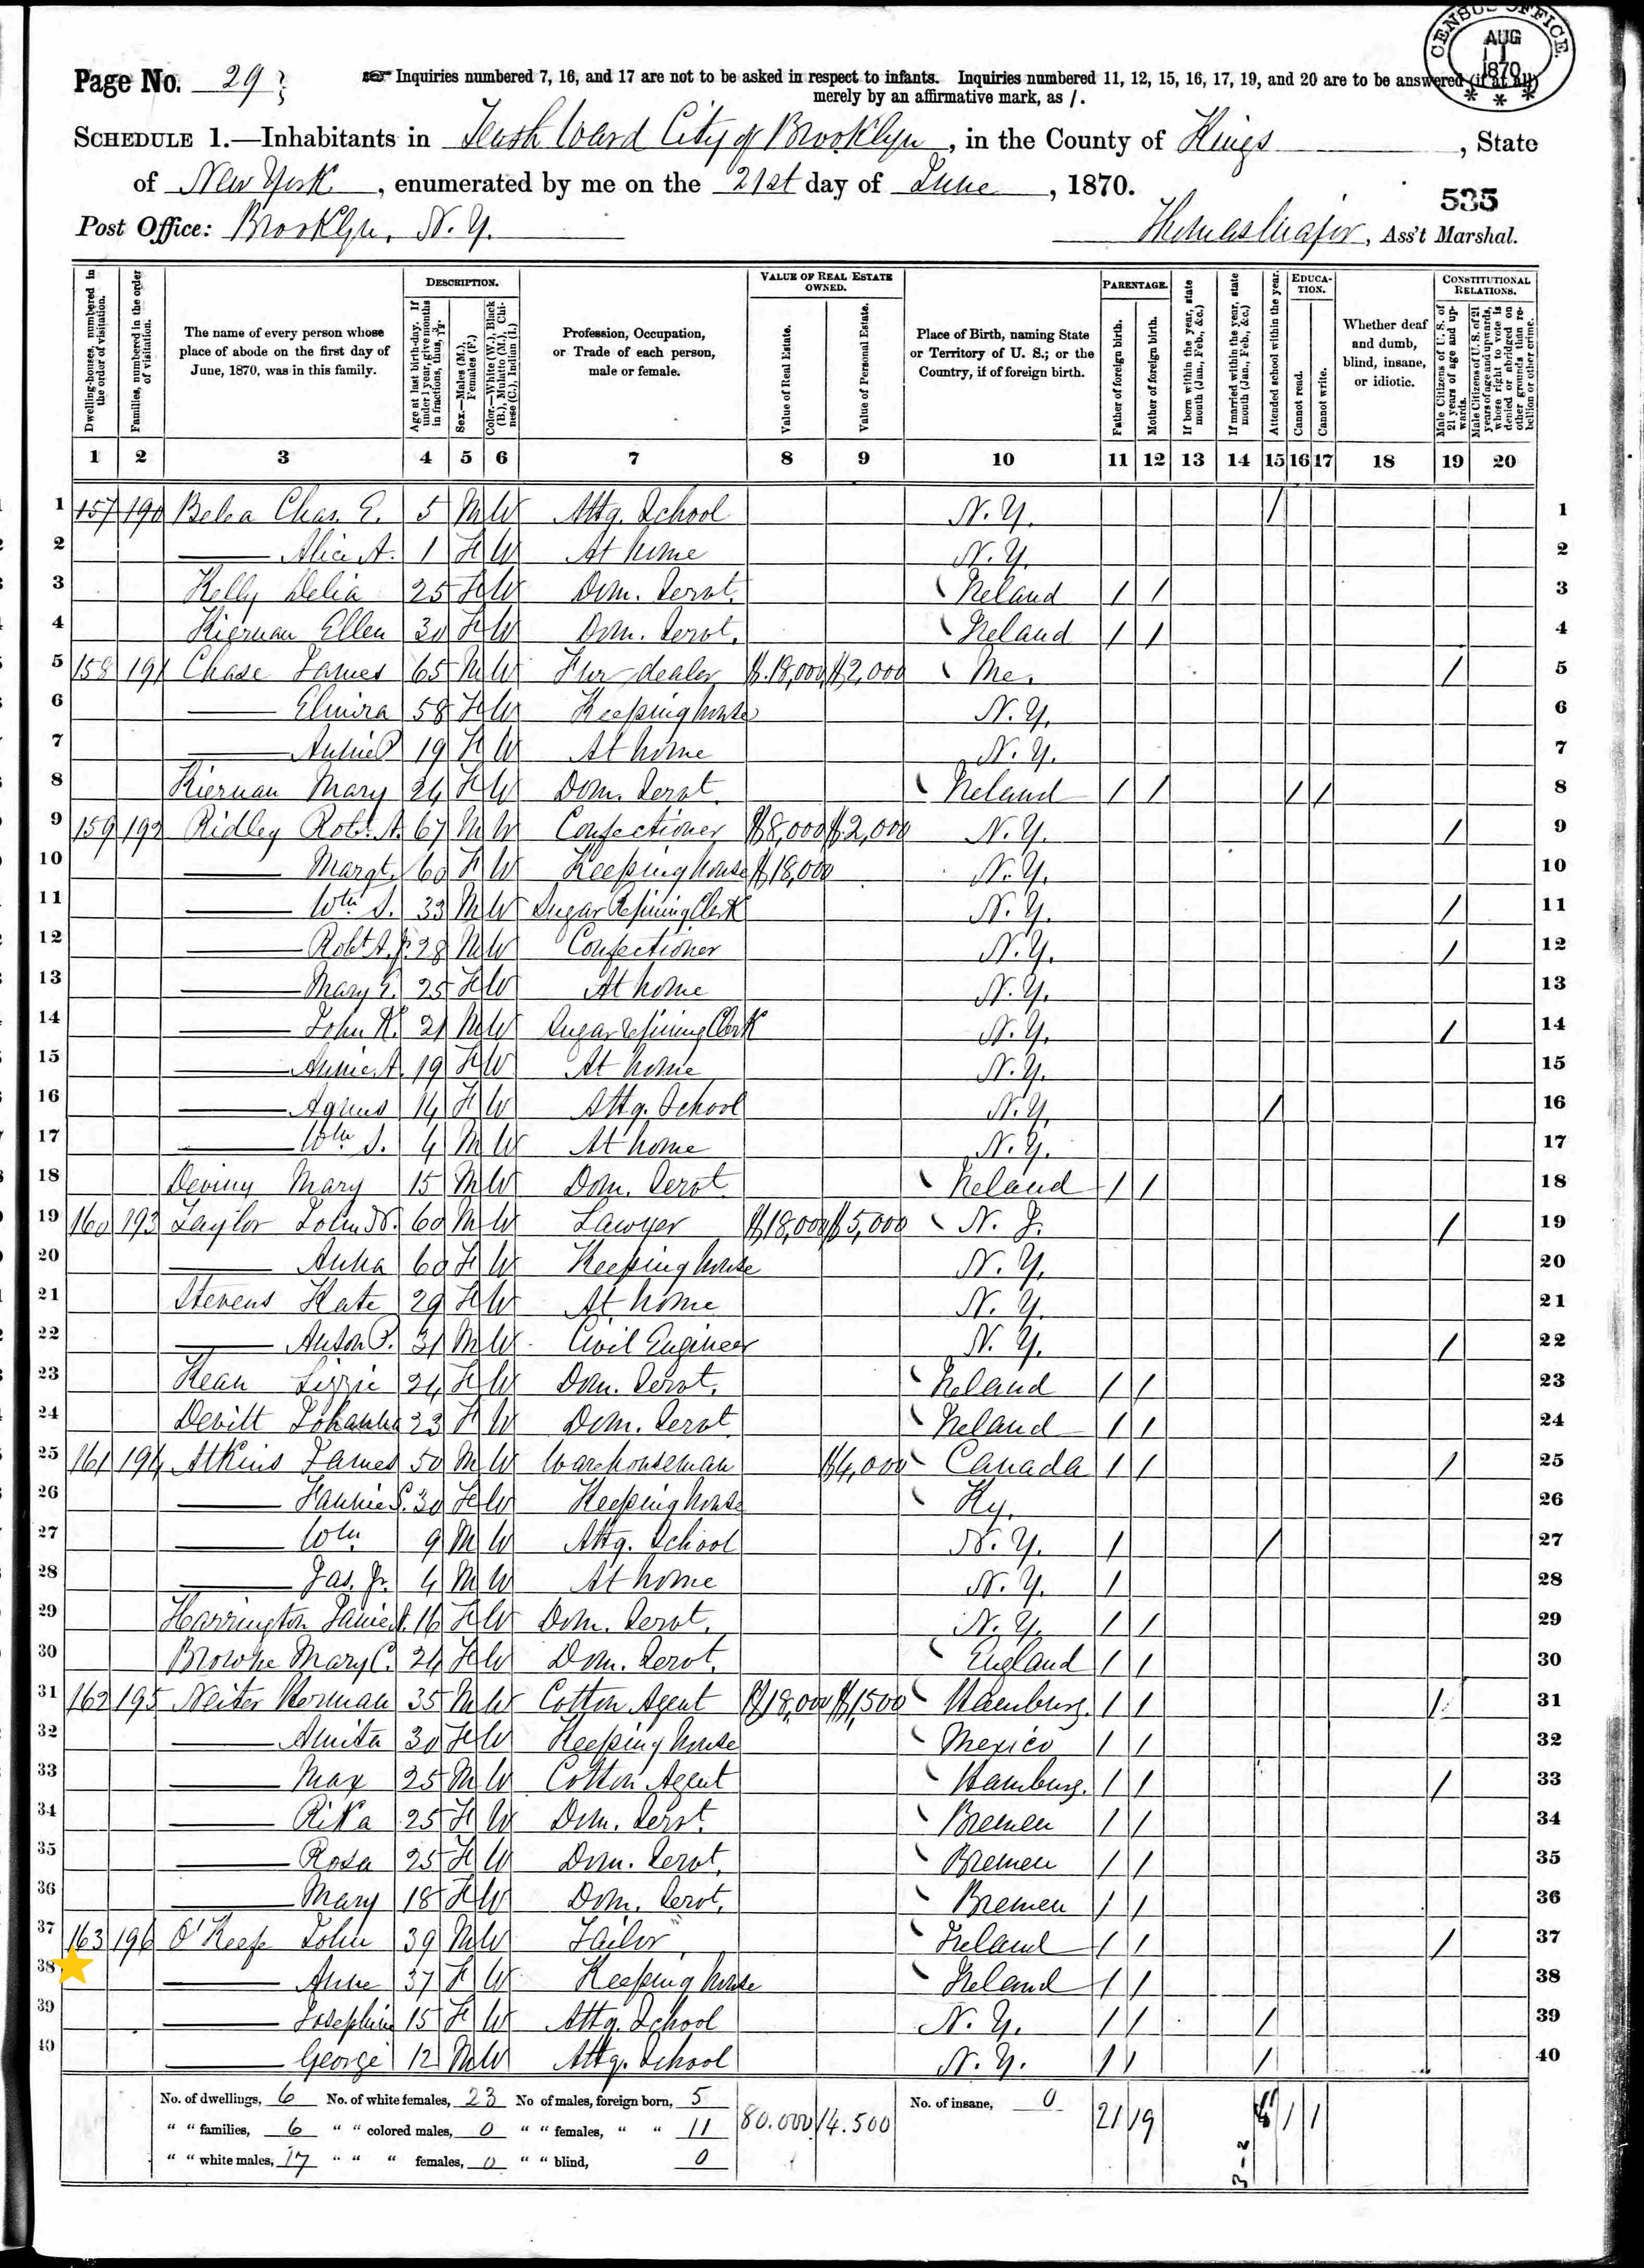 CENSUS OFFICE. AUG 1 1870
Page No. 29
Inquiries numbered 7, 16, and 17 are not to be asked in respect to infants. Inquiries numbered 11, 12, 15, 16, 17, 19, and 20 are to be answered (if at all)
merely by an affirmative mark, as /.
SCHEDULE 1.—Inhabitants in Tenth Ward City of Brooklyn, in the County of Kings, State
of New York, enumerated by me on the 21st day of June, 1870.
535
Post Office: Brooklyn, N. Y. Thomas Major, Ass't Marshal.
Dwelling-houses, numbered in the order of visitation.
Families, numbered in the order of visitation.
The name of every person whose place of abode on the first day of June, 1870, was in this family.
DESCRIPTION.
Age at last birth-day. If under 1 year, give months in fractions, thus, 3/12.
Sex.—Males (M.), Females (F.)
Color.—White (W.), Black (B.), Mulatto (M.), Chinese (C.), Indian (I.)
Profession, Occupation, or Trade of each person, male or female.
VALUE OF REAL ESTATE OWNED.
Value of Real Estate.
Value of Personal Estate.
Place of Birth, naming State or Territory of U. S.; or the Country, if of foreign birth.
PARENTAGE.
Father of foreign birth.
Mother of foreign birth.
If born within the year, state month (Jan., Feb., &c.)
If married within the year, state month (Jan., Feb., &c.)
Attended school within the year.
EDUCATION.
Cannot read.
Cannot write.
Whether deaf and dumb, blind, insane, or idiotic.
CONSTITUTIONAL RELATIONS.
Male Citizens of U. S. of 21 years of age and upwards.
Male Citizens of U. S. of 21 years of age and upwards, whose right to vote is denied or abridged on other grounds than rebellion or other crime.
1 2 3 4 5 6 7 8 9 10 11 12 13 14 15 16 17 18 19 20
1 157 190 Chas. E. 5 M W Attg. School N. Y. / 1
2 —— Alice A. 1 F W At home N. Y. 2
3 Kelly Delia 25 F W Dom. Servt. Ireland / / 3
4 Kiernan Ellen 30 F W Dom. Servt. Ireland / / 4
5 158 191 Chase James 65 M W Fur dealer $18,000 $2,000 Me. / 5
6 —— Elmira 58 F W Keeping house N. Y. 6
7 —— Annie P. 19 F W At home N. Y. 7
8 Kiernan Mary 24 F W Dom. Servt. Ireland / / / / 8
9 159 192 Ridley Robt. A. 67 M W Confectioner $8,000 $2,000 N. Y. / 9
10 —— Margt. 60 F W Keeping house $18,000 N. Y. 10
11 —— Wm. S. 33 M W Sugar Refining Clerk N. Y. / 11
12 —— Robt. A. Jr. 28 M W Confectioner N. Y. / 12
13 —— Mary E. 25 F W At home N. Y. 13
14 —— John K. 21 M W Sugar refining Clerk N. Y. / 14
15 —— Annie A. 19 F W At home N. Y. 15
16 —— Agnes 14 F W Attg. School N. Y. / 16
17 —— Wm. S. 4 M W At home N. Y. 17
18 Deviny Mary 15 M W Dom. Servt. Ireland / / 18
19 160 193 Taylor John N. 60 M W Lawyer $18,000 $5,000 N. J. / 19
20 —— Anna 60 F W Keeping house N. Y. 20
21 Stevens Kate 29 F W At home N. Y. 21
22 —— Anson P. 31 M W Civil Engineer N. Y. / 22
23 Kean Lizzie 24 F W Dom. Servt. Ireland / / 23
24 Devitt Johanna 23 F W Dom. Servt. Ireland / / 24
25 161 194 Atkins James 50 M W Warehouseman $4,000 Canada / / / 25
26 —— Fannie S. 30 F W Keeping house Ky. 26
27 —— Wm. 9 M W Attg. School N. Y. / / 27
28 —— Jas. Jr. 4 M W At home N. Y. / 28
29 Harrington Janie 16 F W Dom. Servt. N. Y. / / 29
30 Browne Mary C. 24 F W Dom. Servt. England / / 30
31 162 195 Neiter Herman 35 M W Cotton Agent $18,000 $1,500 Hamburg. / / / 31
32 —— Anita 30 F W Keeping house Mexico / / 32
33 —— Max 25 M W Cotton Agent Hamburg. / / / 33
34 —— Rika 25 F W Dom. Servt. Bremen / / 34
35 —— Rosa 25 F W Dom. Servt. Bremen / / 35
36 —— Mary 18 F W Dom. Servt. Bremen / / 36
37 163 196 O'Keefe John 39 M W Tailor Ireland / / / 37
38 —— Anne 37 F W Keeping house Ireland / / 38
39 —— Josephine 15 F W Attg. School N. Y. / / / 39
40 —— George 12 M W Attg. School N. Y. / / / 40
No. of dwellings, 6 No. of white females, 23 No of males, foreign born, 5 80.000 14.500 No. of insane, 0 21 19 1 1
" " families, 6 " " colored males, 0 " " females, " " 11
" " white males, 17 " " " females, 0 " " blind, 0